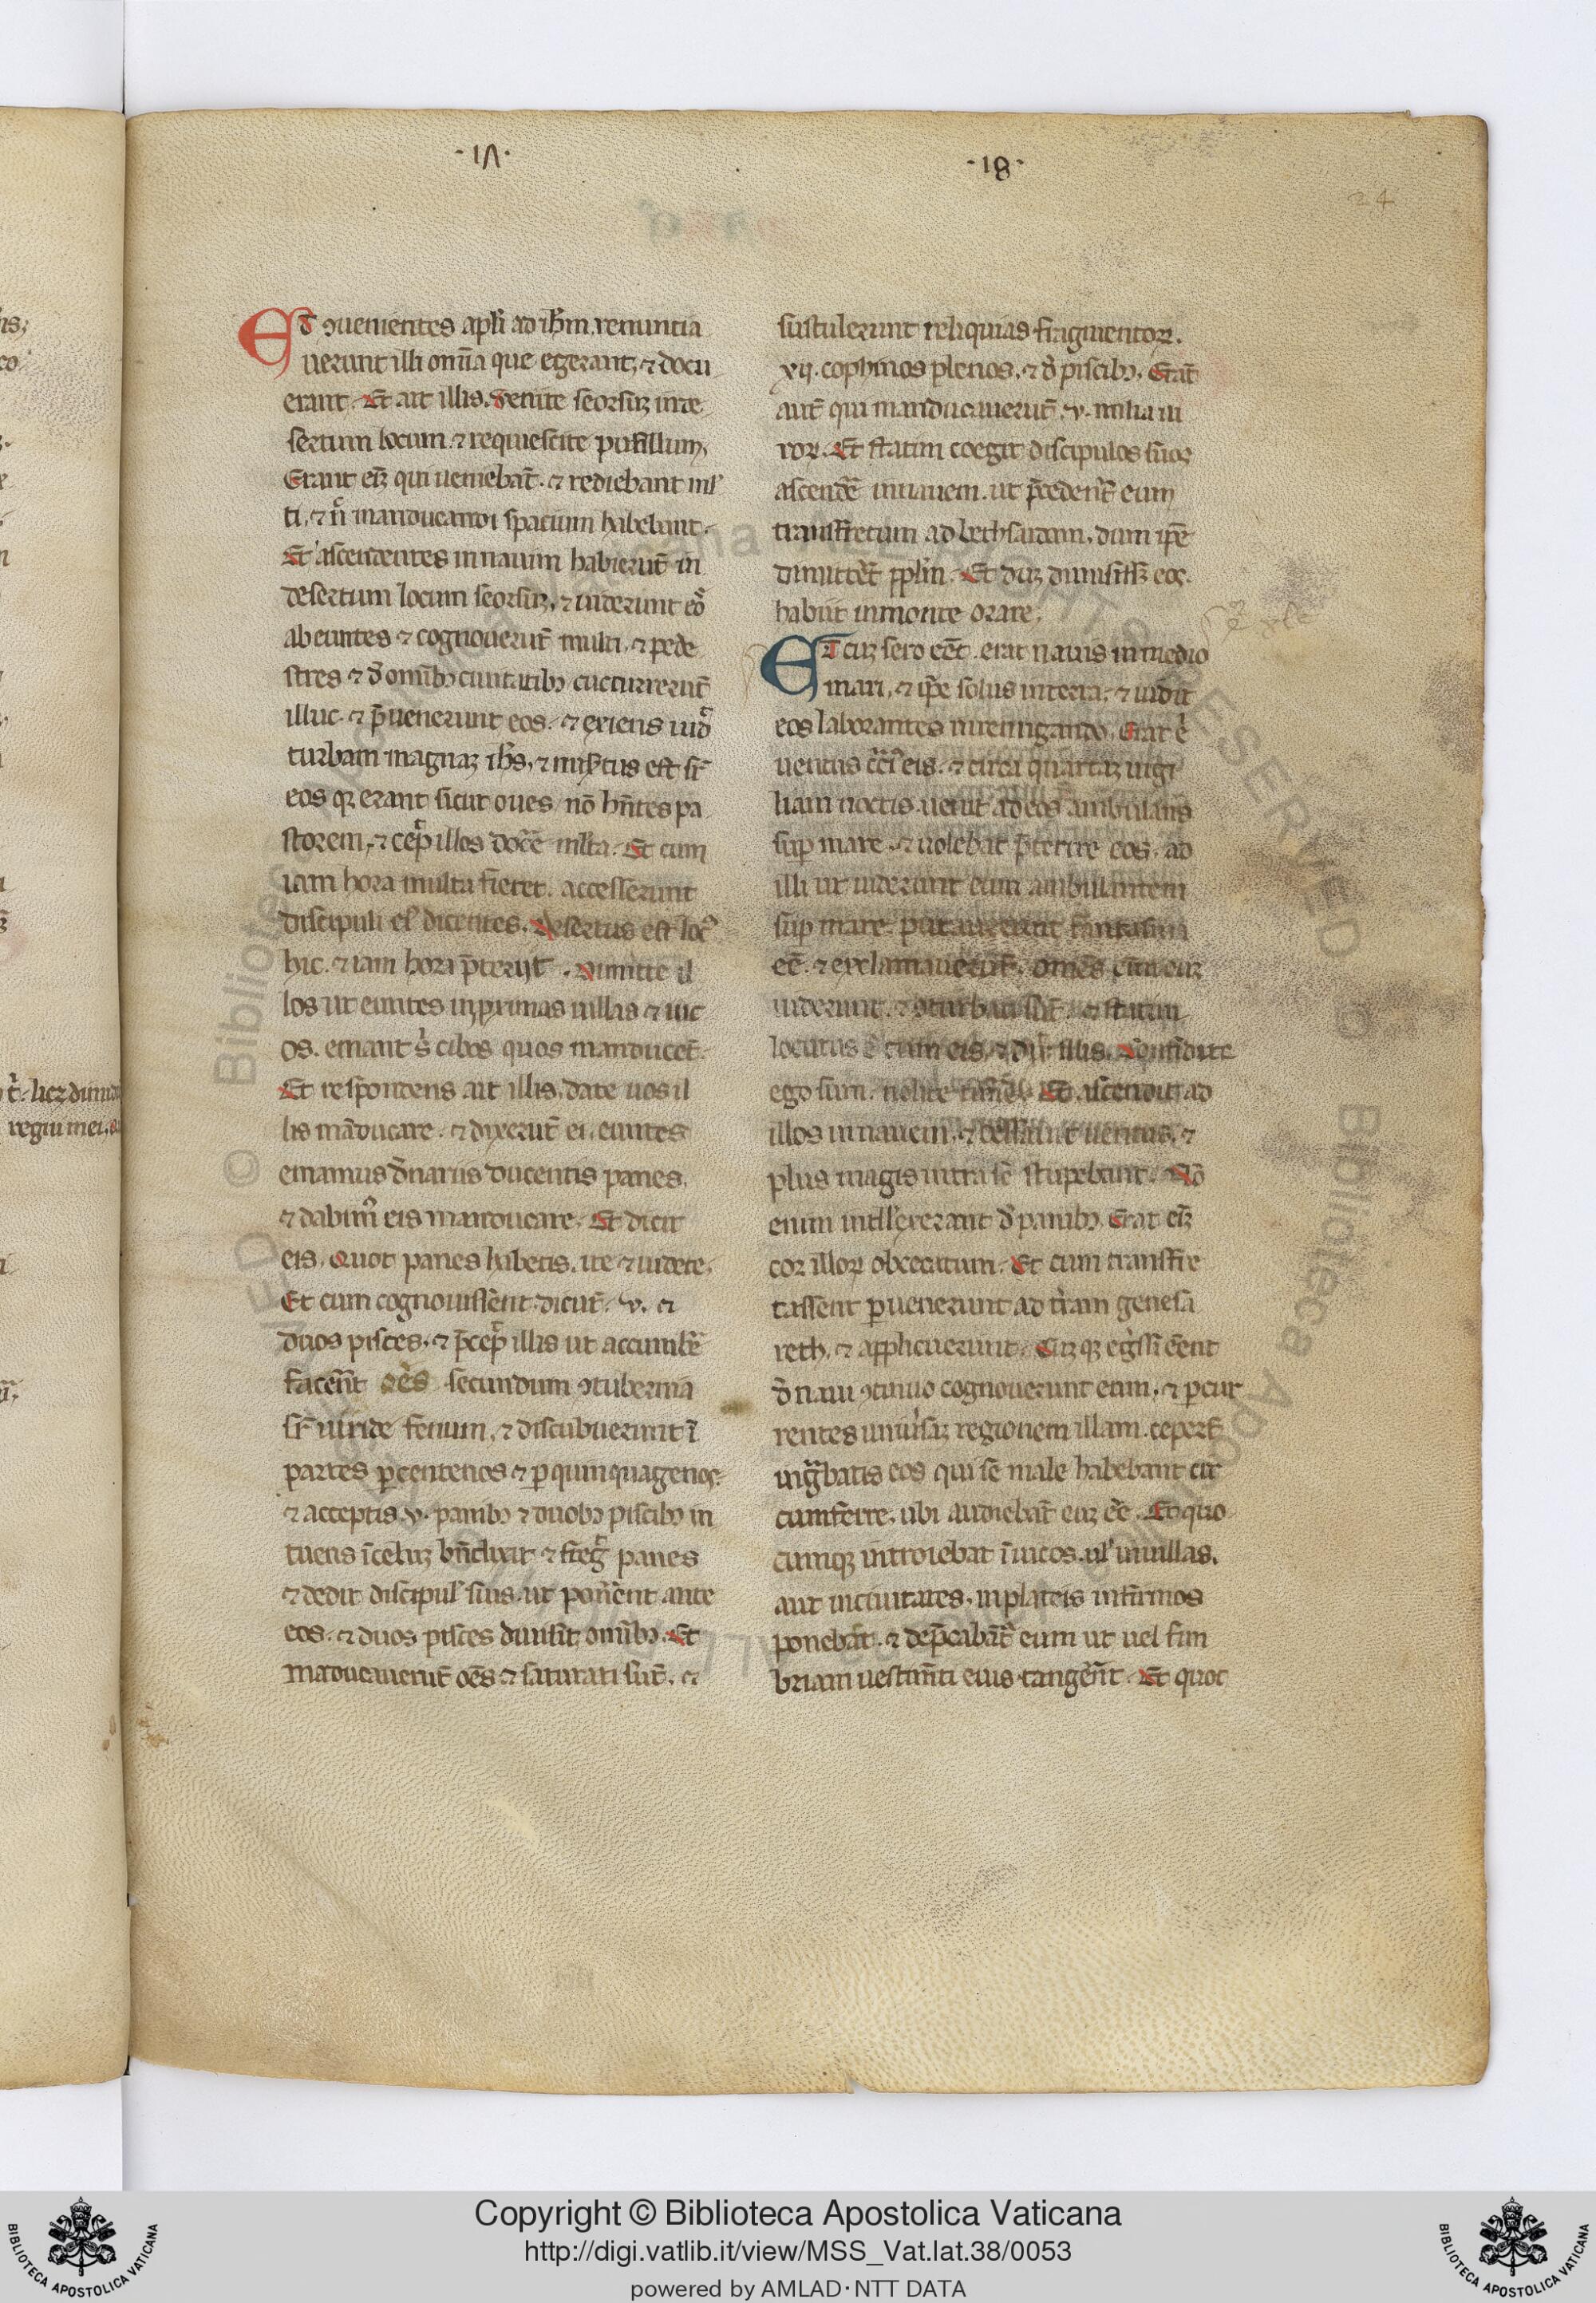 ·17·
·18·
24
Et ꝯuenientes apl̄i ad ih̄m. renuntia
uerunt illi om̄ia que egerant, ⁊ docu
erant. Et ait illis. Venite seorsuꝫ in de
sertum locum ⁊ requiescite pusillum,
Erant eiꝫ qui ueniebāt. ⁊ rediebant ml̓
ti, ⁊ n̄ manducandi spacium habebant.
Et ascendentes in nauim habierūt in
desertum locum seorsuꝫ, ⁊ uiderunt eo̓
abeuntes ⁊ cognouerūt multi, ⁊ pede
stres ⁊ d̄ om̄ibꝰ ciuitatibꝰ cuccurrerūt
illuc. ⁊ p̄uenerunt eos. ⁊ exiens uid̓
turbam magnaꝫ ih̄s, ⁊ mis̓tus est sr̄
eos qꝫ erant sicut oues nō hn̄tes pa
storem, ⁊ cep̓ illos docē ml̓ta. Et cum
iam hora multa fieret. accesserunt
discipuli ei̓ dicentes. Desertus est loc̓
hic. ⁊ iam hora p̄terijt. Dimitte il
los ut euntes in ꝓximas uillas ⁊ uic
os. emant s̓ cibos quos manducēt.
Et respondens ait illis, date uos il
lis māducare. ⁊ dixerūt ei. euntes
emamus d̄nariis ducentis panes,
⁊ dabim̓ eis manducare. Et dicit
eis. Quot panes habetis. ite ⁊ uidete.
Et cum cognouissent dicūt. v. ⁊
duos pisces, ⁊ p̄cep̓ illis ut accumbē
facer̄et oēs secundum ꝯtubernia
sr̄ uiride fenum, ⁊ discubuerunt ī
partes ꝑ centenos ⁊ ꝑ quinquagenoꝭ.
⁊ acceptis .v. panibꝰ ⁊ duobꝰ piscibꝰ in
tuens ī celuꝫ bn̄dixit ⁊ freg̓ panes
⁊ dedit discipul̓ suis. ut ponēent ante
eos. ⁊ duos pisces diuisit om̄ibꝰ. Et
māducauerūt oēs ⁊ saturati sūt, ⁊
sustulerunt reliquias fragmentoꝝ.
xij. cophinos plenos, ⁊ d̄ piscibꝰ. Erāt
aut̄ qui manducauerūt .v. milia ui
roꝝ. Et statim coegit discipulos suoꝭ
ascendē in nauem. ut p̄cederēt eum
transfretum ad bethsaidam, dum ipē
dimittēt ppl̄m. Et duꝫ dimisissꝫ eoꝭ.
habiit in monte orare.
Et cuꝫ sero eēt. erat nauis in medio
mari, ⁊ ip̄e solus in terra. ⁊ uidit
eos laborantes in remigando, Erat e̓
uentus ꝯt̓i̓ eis. ⁊ circa quartaꝫ uigi
liam noctis uenit ad eos ambulans
suꝑ mare, ⁊ uolebat p̄terire eos. ad
illi ut uiderunt eum ambulantem
suꝑ mare. putauerunt fantasma
eē. ⁊ exclamauerūt. omēs eiꝫ eum
uiderunt. ⁊ ꝯturbati sūt. ⁊ statim
locutus ē cum eis, ⁊ dix̓ illis. Confidite
ego sum. nolite timē. Et ascendit ad
illos in nauem, ⁊ cessauit uentus, ⁊
plus magis intra se stupebant. Nō
enim intell̓exerant d̄ panibꝰ. Erat eiꝫ
cor illoꝝ obcecatum. Et cum transfre
tassent ꝑuenerunt ad t̓ram genesa
reth, ⁊ applicuerunt. Cuꝫ qꝫ eg̓ssi eēnt
d̄ naui ꝯtinuo cognouerunt eum, ⁊ ꝑcur
rentes uniu̓saꝫ regionem illam. ceperūt
in g̓batis eos qui se male habebant cir
cumferre, ubi audiebāt euꝫ eē. Et quo
cumqꝫ introiebat ī uicos. ul̓ in uillas,
aut in ciuitates, in plateis infirmos
ponebāt. ⁊ dep̄cabāt̓ eum ut uel fim
briam uestim̄ti eius tangerēt. Et quot
Copyright © Biblioteca Apostolica Vaticana
http://digi.vatlib.it/view/MSS_Vat.lat.38/0053
powered by AMLAD·NTT DATA
BIBLIOTECA APOSTOLICA VATICANA
BIBLIOTECA APOSTOLICA VATICANA